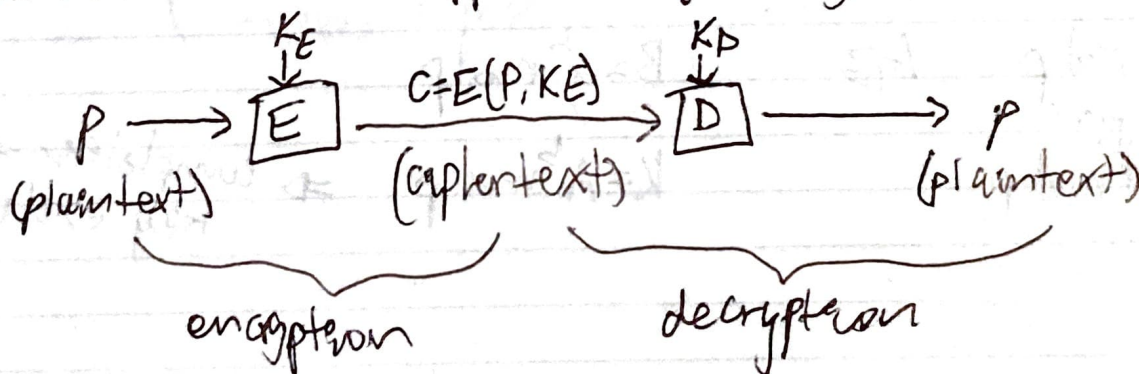 KE KD
P → [E] C=E(P,KE) → [D] → P
(plaintext) (ciphertext) (plaintext)
encryption decryption